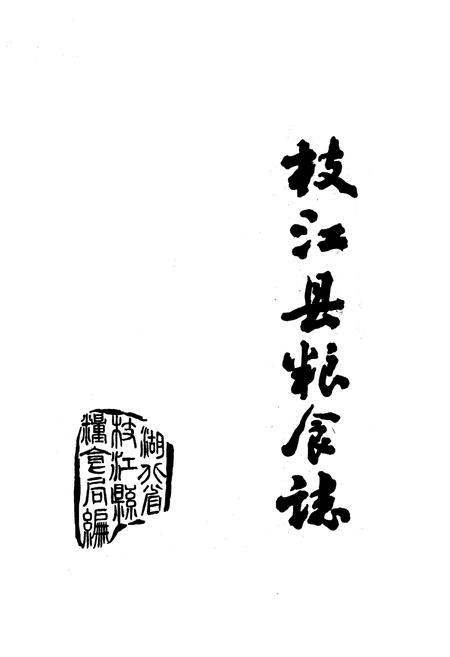 枝江县粮食誌
湖北省
枝江縣
糧食局編